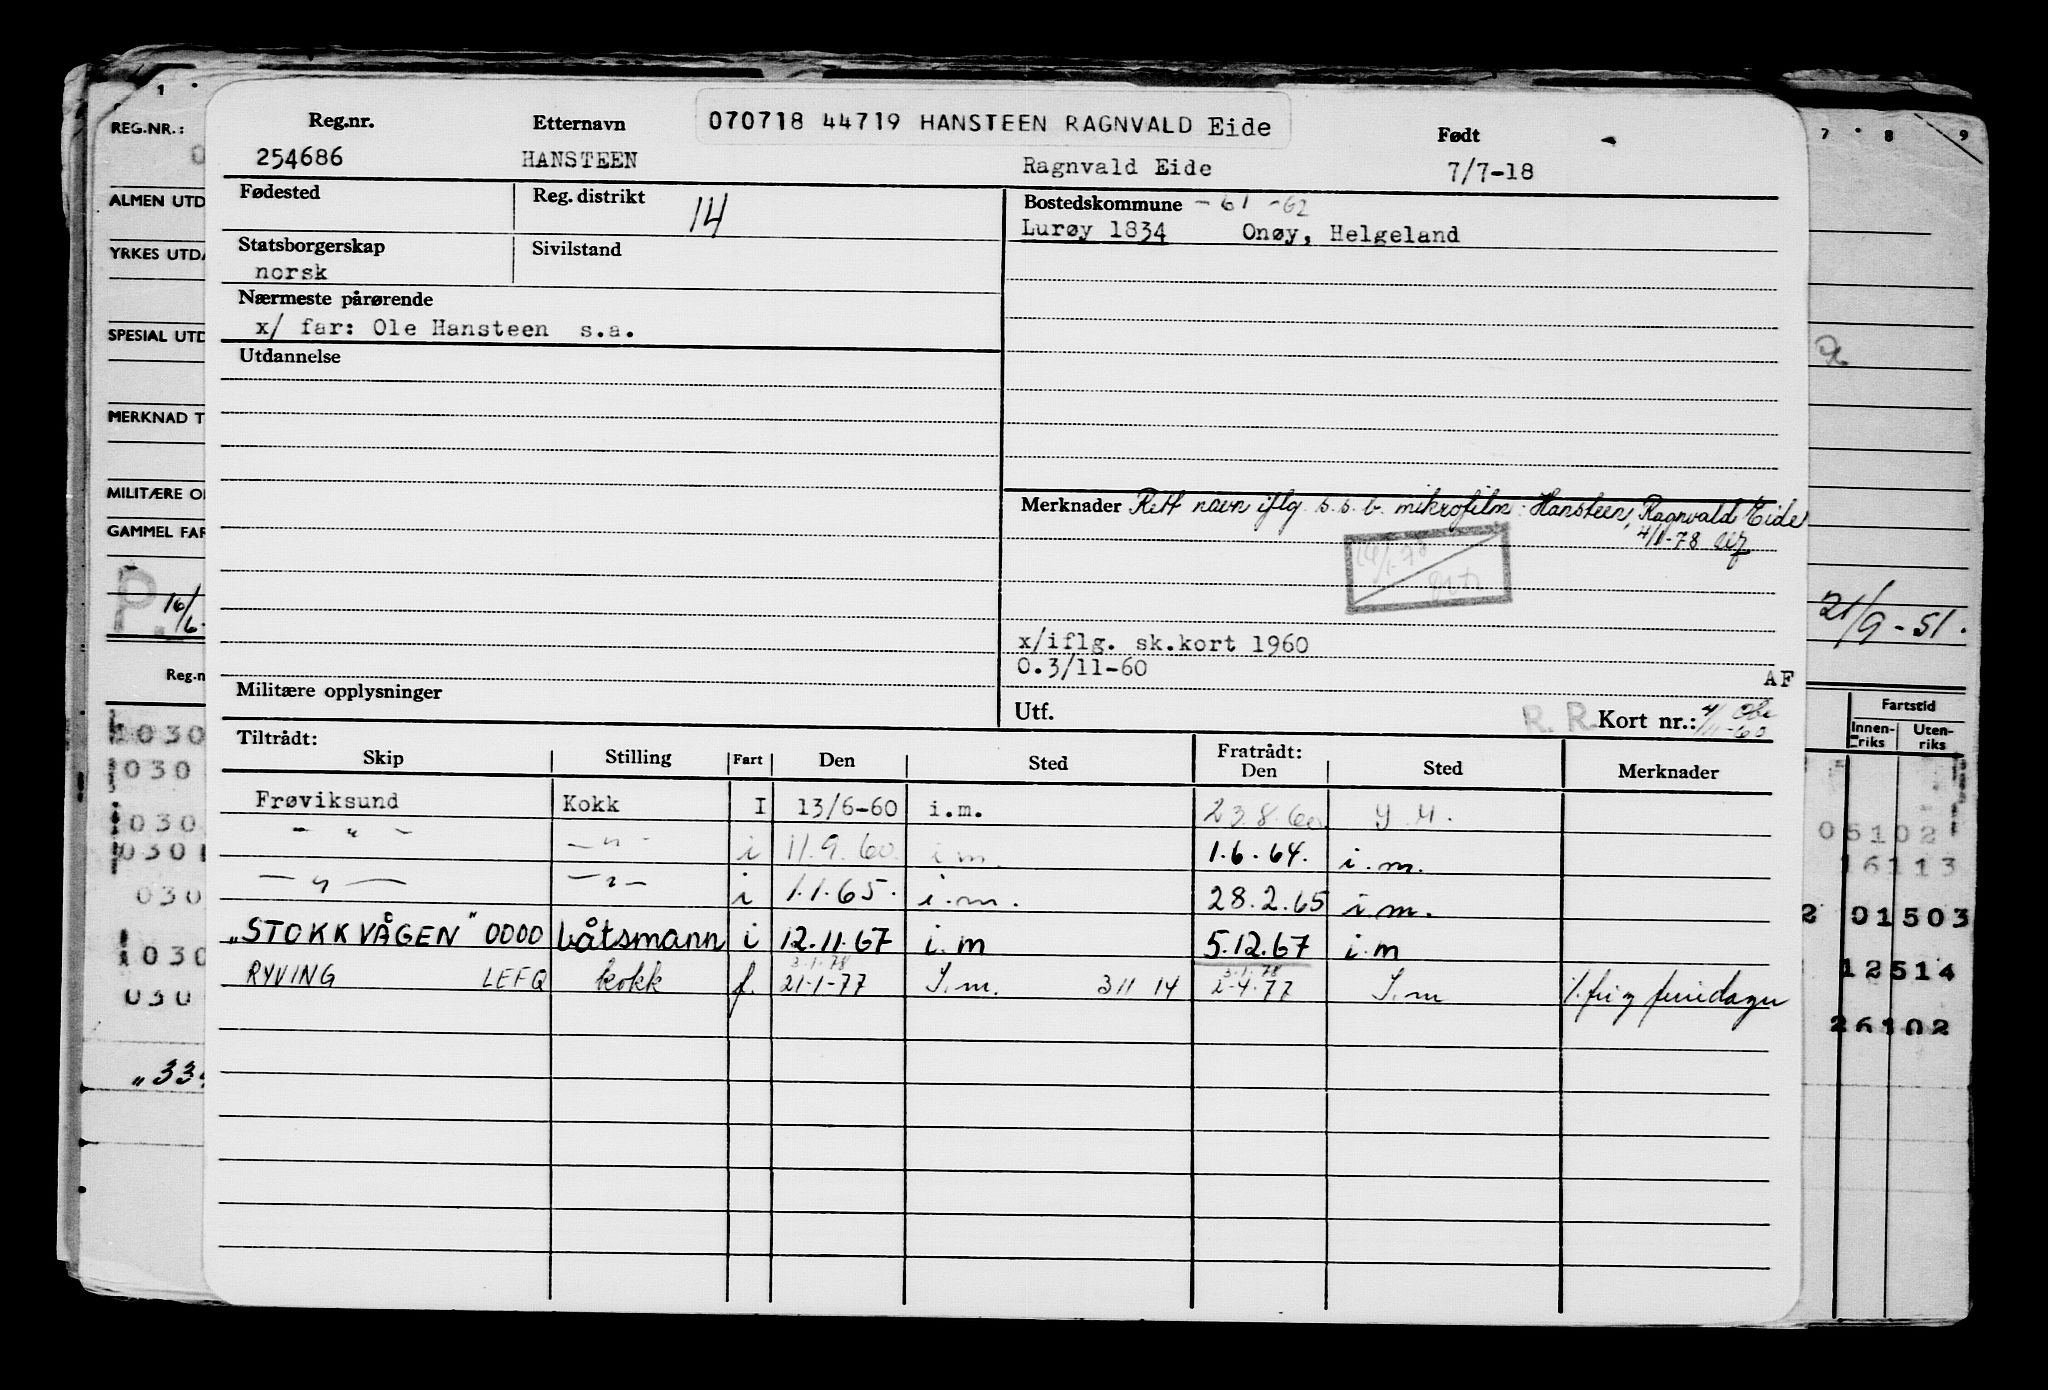 070718 44719 HANSTEEN RAGNVALD Eide
Reg.nr. Etternavn Født
254686 HANSTEEN Ragnvald Eide 7/7-18
Fødested Reg. distrikt 14 Bostedskommune - 61 -62
Lurøy 1834 Onøy, Helgeland
Statsborgerskap Sivilstand
norsk
Nærmeste pårørende
x/ far: Ole Hansteen s.a.
Utdannelse
Merknader Rett navn iflg. s.s.b. mikrofilm: Hansteen, Ragnvald Eide
4/1-78
x/iflg. sk.kort 1960
0.3/11-60
AF
Militære opplysninger
Utf. R. R. Kort nr.: 4/11-60
Tiltrådt: Fratrådt:
Skip Stilling Fart Den Sted Den Sted Merknader
Frøviksund Kokk I 13/6-60 i.m. 23.8.60 I M.
— " — — " — i 11.9.60. i m. 1.6.64. i.m.
— " — — " — i 1.1.65. i.m. 28.2.65 i.m.
"STOKKVÅGEN" OOOO båtsmann i 12.11.67 i.m 5.12.67 i.m
3.1.78 3.1.78
RYVING LEFQ kokk f. 21-1-77 I.m. 311 14 2-4.77 I.m
REG.NR.:
ALMEN UTD
YRKES UTDA
SPESIAL UTD
MERKNAD T
MILITÆRE O
GAMMEL FAR
P. 16/6-
Reg.n
030
030
030
030
030
030
030
"33
1 7 8 9
21/9-51.
Fartstid
Innenriks Utenriks
05102
16113
2 01503
12514
26102